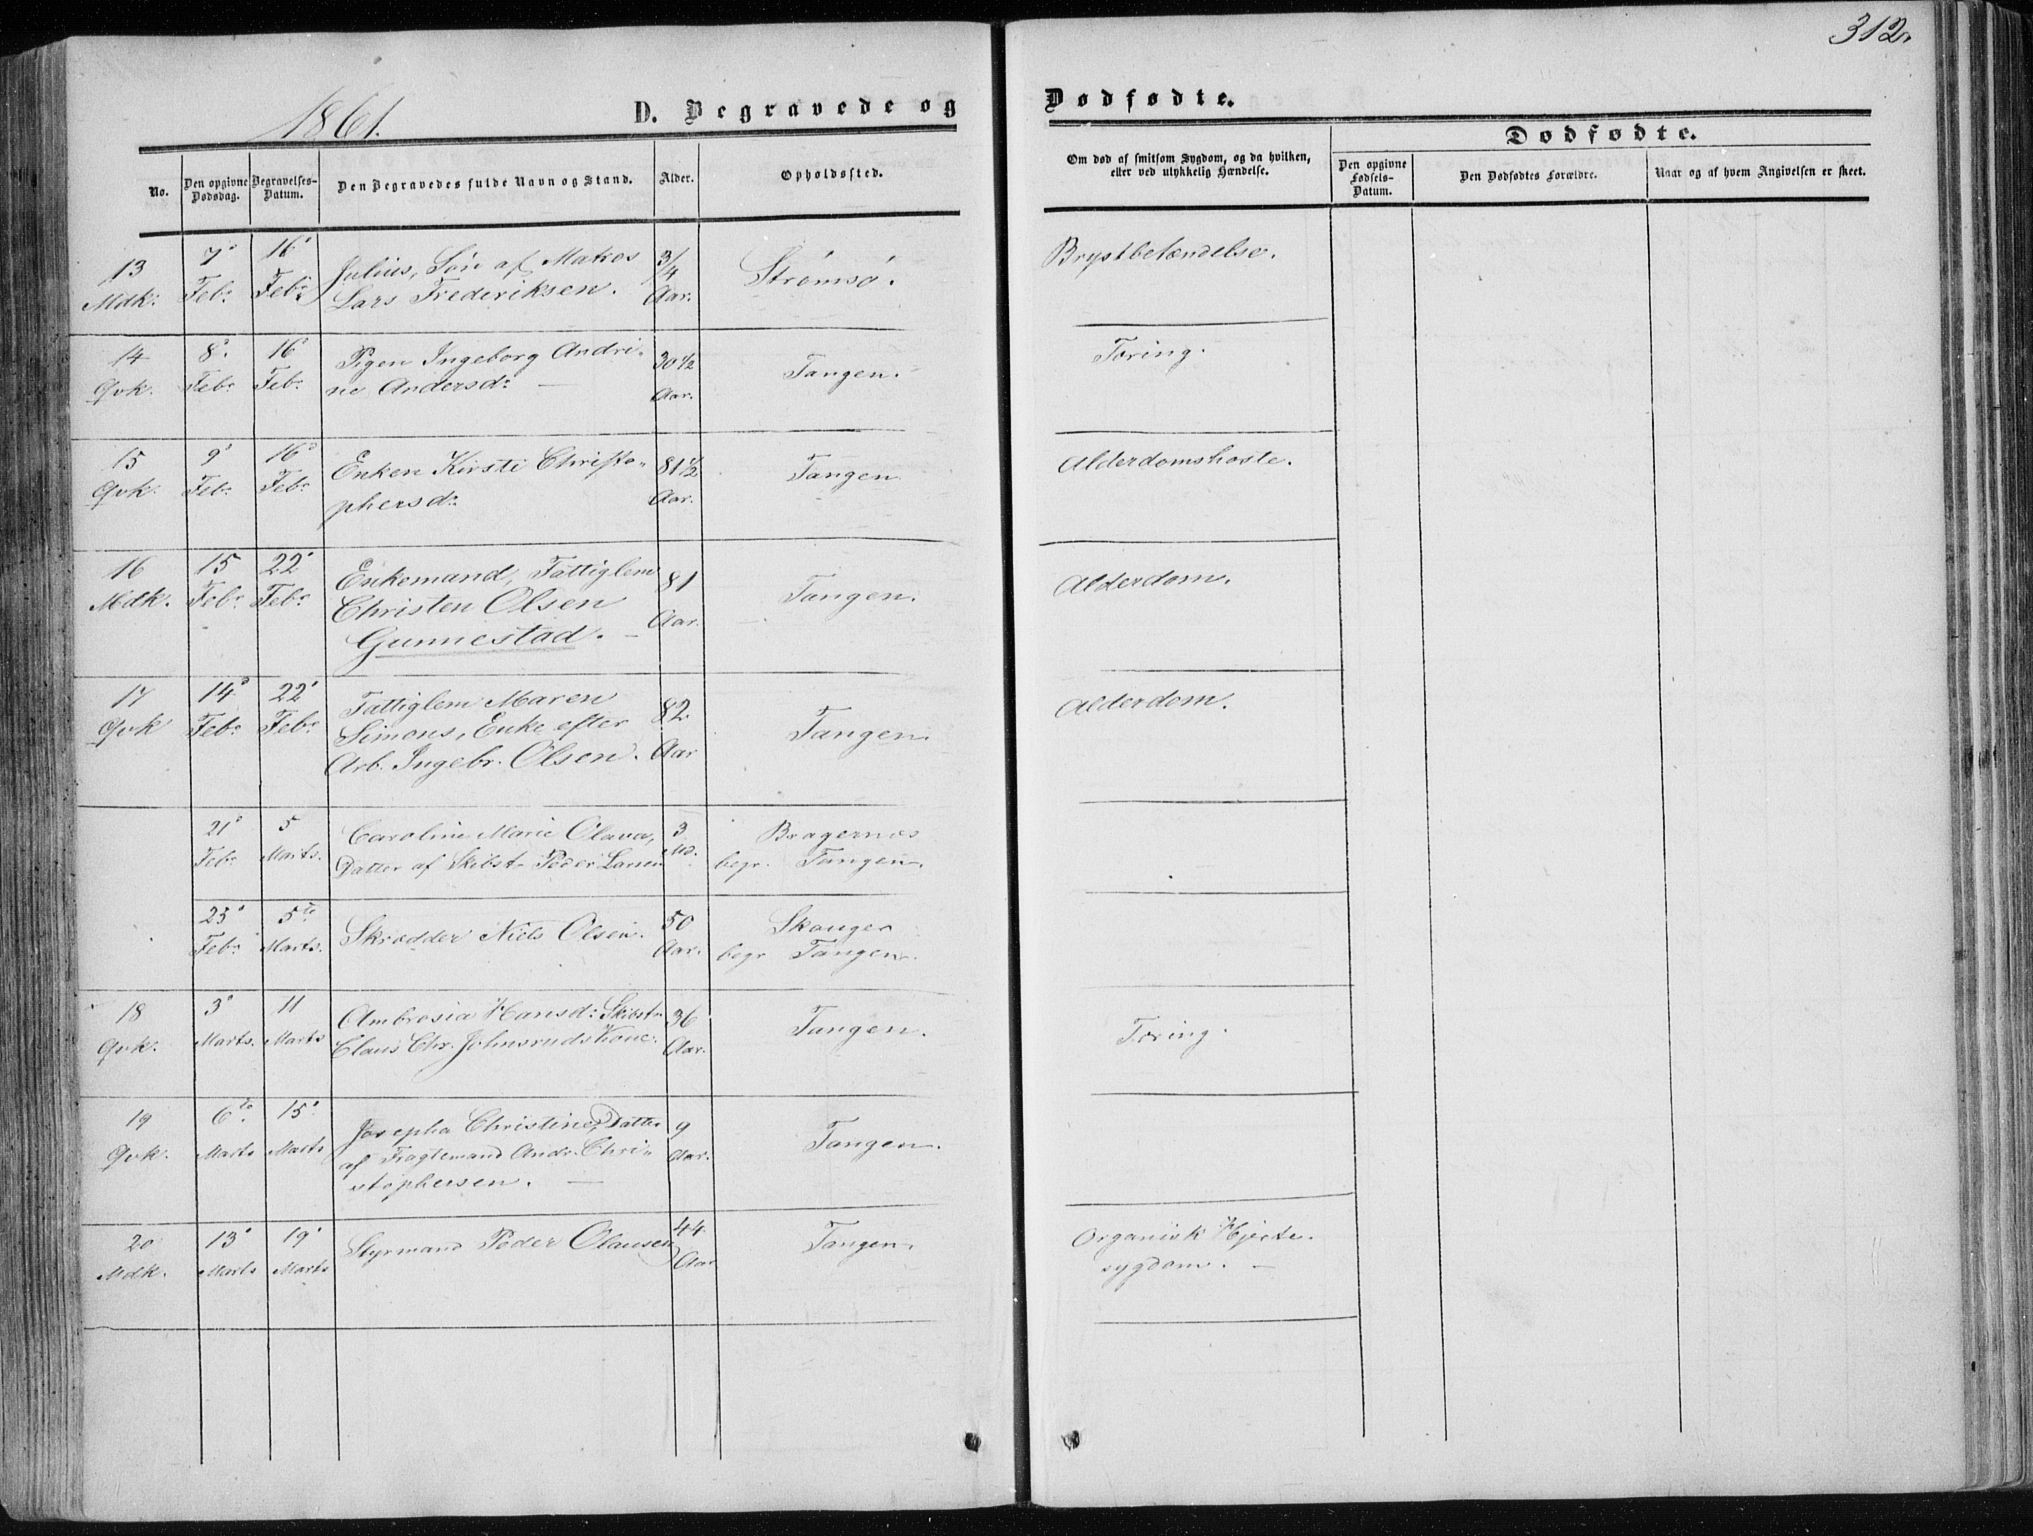 312.
1861.
D. Begravede og
Dødfødte.
No.
Den opgivne Dødsdag.
Begravelses-Datum.
Den Begravedes fulde Navn og Stand.
Alder.
Opholdssted.
Om død af smitsom Sygdom, og da hvilken, eller ved ulykkelig Hændelse.
Dødfødte.
Den opgivne Fødsels-Datum.
Den Dødfødtes Forældre.
Naar og af hvem Angivelsen er skeet.
13 Mdk: 7' Feb: 16' Feb:
Julius, Søn af
Lars Frederiksen.
3/4 Aar.
Strømsø.
Brystbetændelse.
14 Qvk. 8' Feb: 16' Feb:
Pigen Ingeborg Andri-
ne Andersd: —
30 1/2 Aar.
Tangen.
Tæring.
15 Qvk. 9' Feb: 16' Feb:
Enken Kirsti Christo-
phersd:
81 1/2 Aar.
Tangen
Alderdomshoste.
16 Mdk. 15 Feb: 22' Feb:
Enkemand, Fattiglem
Christen Olsen
Gunnestad. —
81 Aar.
Tangen.
Alderdom.
17 Qvk 14' Feb: 22' Feb:
Fattiglem Maren
Simons, Enke efter
Arb. Ingebr. Olsen.
82 Aar
Tangen.
Alderdom.
21' Feb: 5 Marts.
Caroline Marie Olava,
Datter af Skibst. Peder Larsen
3 Md.
Bragernæs
begr. Tangen.
25' Feb: 5te Marts.
Skrædder Niels Olsen.
50 Aar.
Skouger
begr Tangen.
18 Qvk. 3' Marts. 11 Marts
Ambrosia Hansd: Skibstm
Claus Chr. Johnsruds Kone.
36 Aar.
Tangen.
Tæring.
19 Qvk. 6te Marts 15' Marts
Josepha Christine, Datter
af Fragtemand Andr. Chri-
stophersen. —
9 Aar.
Tangen.
20 Mdk. 13' Marts 19' Marts
Styrmand Peder Olausen
44 Aar
Tangen.
Organisk Hjerte-
sygdom. —